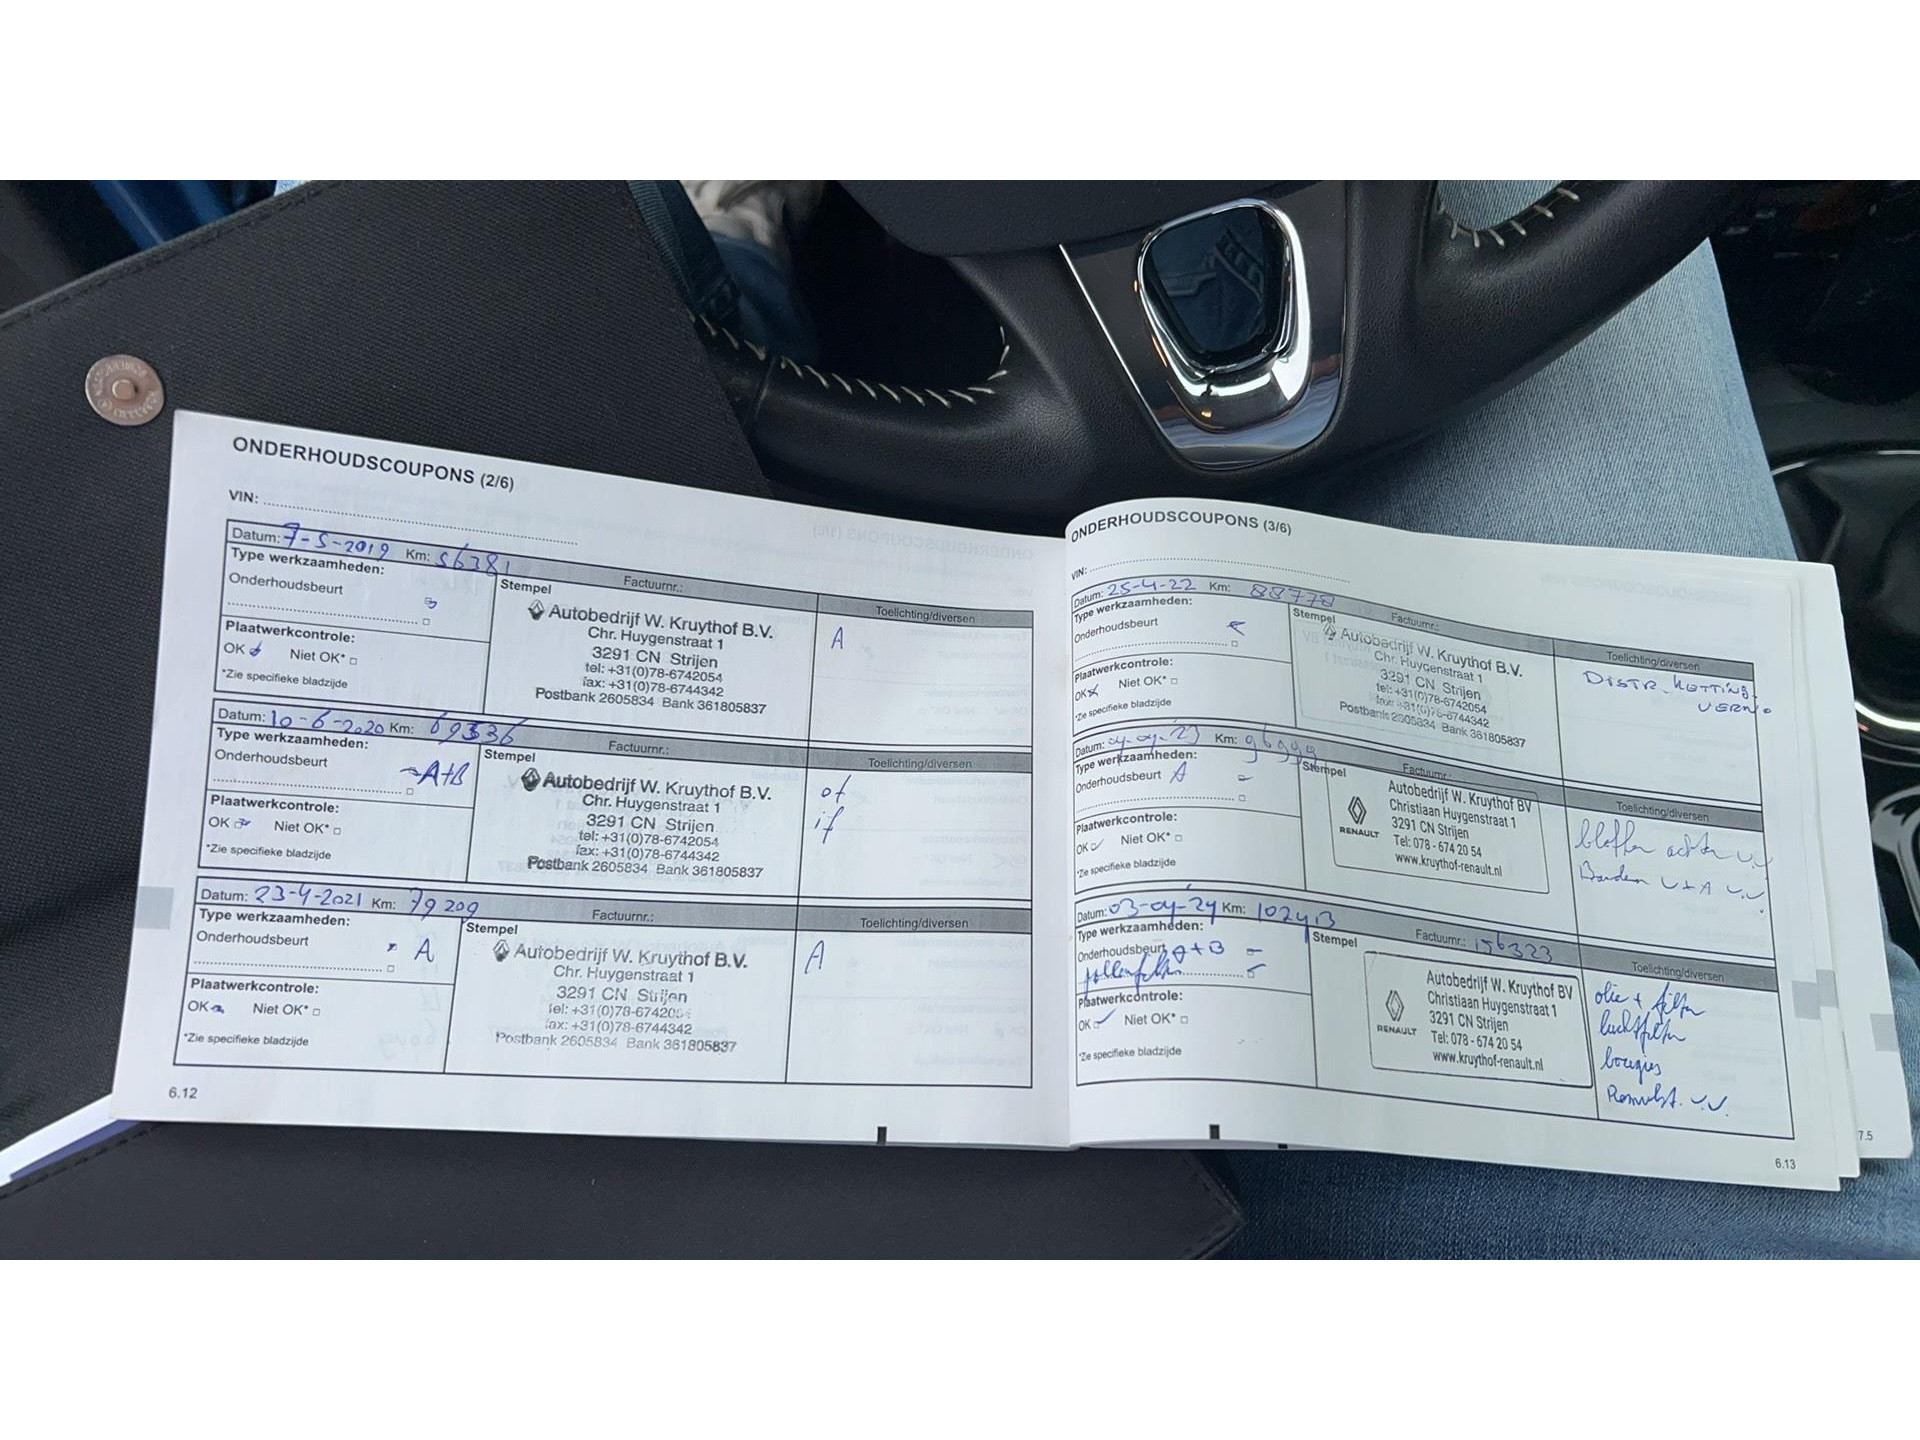 ONDERHOUDSCOUPONS (2/6)
VIN:
Datum: 7-5-2019 Km: 56381
Type werkzaamheden:
Onderhoudsbeurt
Plaatwerkcontrole:
OK Niet OK*
*Zie specifieke bladzijde
Stempel Factuurnr.:
Autobedrijf W. Kruythof B.V.
Chr. Huygenstraat 1
3291 CN Strijen
tel: +31(0)78-6742054
fax: +31(0)78-6744342
Postbank 2605834 Bank 361805837
Toelichting/diversen
A
Datum: 10-6-2020 Km: 69336
Type werkzaamheden:
Onderhoudsbeurt A+B
Plaatwerkcontrole:
OK Niet OK*
*Zie specifieke bladzijde
Stempel Factuurnr.:
Autobedrijf W. Kruythof B.V.
Chr. Huygenstraat 1
3291 CN Strijen
tel: +31(0)78-6742054
fax: +31(0)78-6744342
Postbank 2605834 Bank 361805837
Toelichting/diversen
of
if
Datum: 23-4-2021 Km: 79209
Type werkzaamheden:
Onderhoudsbeurt A
Plaatwerkcontrole:
OK Niet OK*
*Zie specifieke bladzijde
Stempel Factuurnr.:
Autobedrijf W. Kruythof B.V.
Chr. Huygenstraat 1
3291 CN Strijen
tel: +31(0)78-6742054
fax: +31(0)78-6744342
Postbank 2605834 Bank 361805837
Toelichting/diversen
A
6.12
ONDERHOUDSCOUPONS (3/6)
VIN:
Datum: 25-4-22 Km: 88778
Type werkzaamheden:
Onderhoudsbeurt
Plaatwerkcontrole:
OK Niet OK*
*Zie specifieke bladzijde
Stempel Factuurnr.:
Autobedrijf W. Kruythof B.V.
Chr. Huygenstraat 1
3291 CN Strijen
tel: +31(0)78-6742054
fax: +31(0)78-6744342
Postbank 2605834 Bank 361805837
Toelichting/diversen
DISTR.
Datum: Km: 96999
Type werkzaamheden:
Onderhoudsbeurt A
Plaatwerkcontrole:
OK Niet OK*
*Zie specifieke bladzijde
Stempel Factuurnr.:
RENAULT
Autobedrijf W. Kruythof BV
Christiaan Huygenstraat 1
3291 CN Strijen
Tel: 078 - 674 20 54
www.kruythof-renault.nl
Toelichting/diversen
blokken achter v.v
Banden V+A v.v.
Datum: 03-04-24 Km: 102413
Type werkzaamheden:
Onderhoudsbeurt A+B
pollenfilter
Plaatwerkcontrole:
OK Niet OK*
*Zie specifieke bladzijde
Stempel Factuurnr.: 156323
RENAULT
Autobedrijf W. Kruythof BV
Christiaan Huygenstraat 1
3291 CN Strijen
Tel: 078 - 674 20 54
www.kruythof-renault.nl
Toelichting/diversen
olie + filter
luchtfilter
bougies
Remvlst. v.v.
6.13
7.5